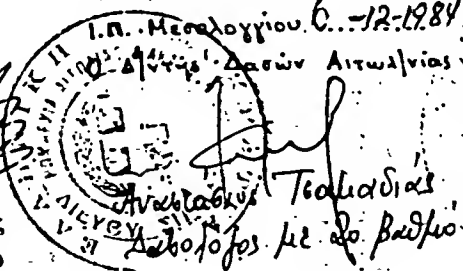 Ι.Π. Μεσολογγίου 6-12-1984
Ο Δ/ντης Δασών Αιτωλ/νίας
Αναστάσιος Τσαμαδιάς
Δασολόγος με 2ο βαθμό